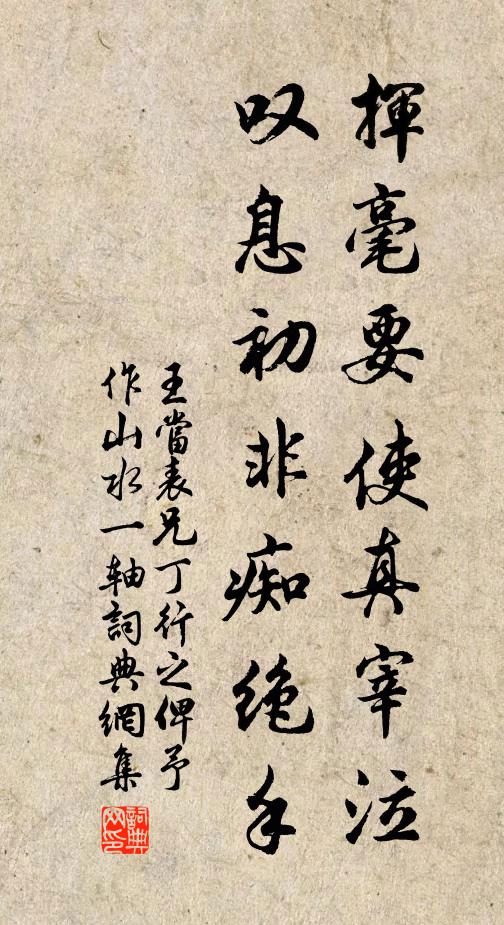 揮毫要使真宰泣
叹息初非痴絶手
王當表兄丁行之俾予
作山水一轴詞典網集
詞典
网印